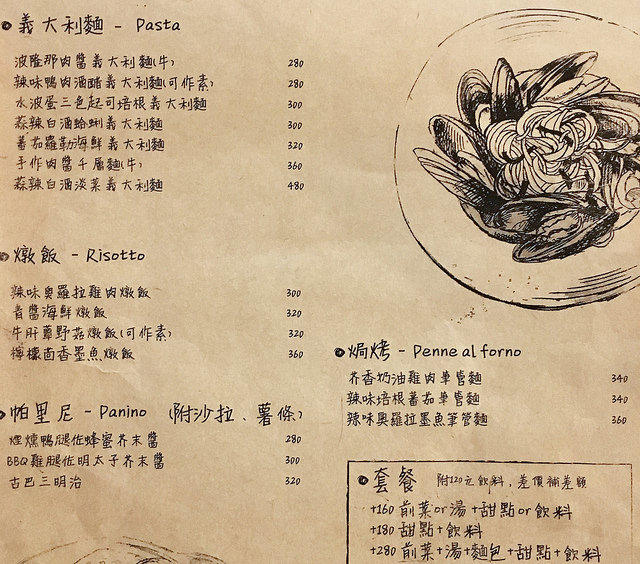 義大利麵 - Pasta
波隆那肉醬義大利麵(牛) 280
辣味鴨肉酒醋義大利麵(可作素) 280
水波蛋三色起司培根義大利麵 300
蒜辣白酒蛤蜊義大利麵 300
蕃茄羅勒海鮮義大利麵 320
手作肉醬千層麵(牛) 360
蒜辣白酒淡菜義大利麵 480
燉飯 - Risotto
辣味奧羅拉雞肉燉飯 300
青醬海鮮燉飯 320
牛肝蕈野菇燉飯(可作素) 320
檸檬茴香墨魚燉飯 360
帕里尼 - Panino (附沙拉、薯條)
煙燻鴨腿佐蜂蜜芥末醬 280
BBQ雞腿佐明太子芥末醬 300
古巴三明治 320
焗烤 - Penne al forno
芥香奶油雞肉筆管麵 340
辣味培根蕃茄筆管麵 340
辣味奧羅拉墨魚筆管麵 360
套餐 附120元飲料,差價補差額
+160 前菜or湯+甜點or飲料
+180 甜點+飲料
+280 前菜+湯+麵包+甜點+飲料